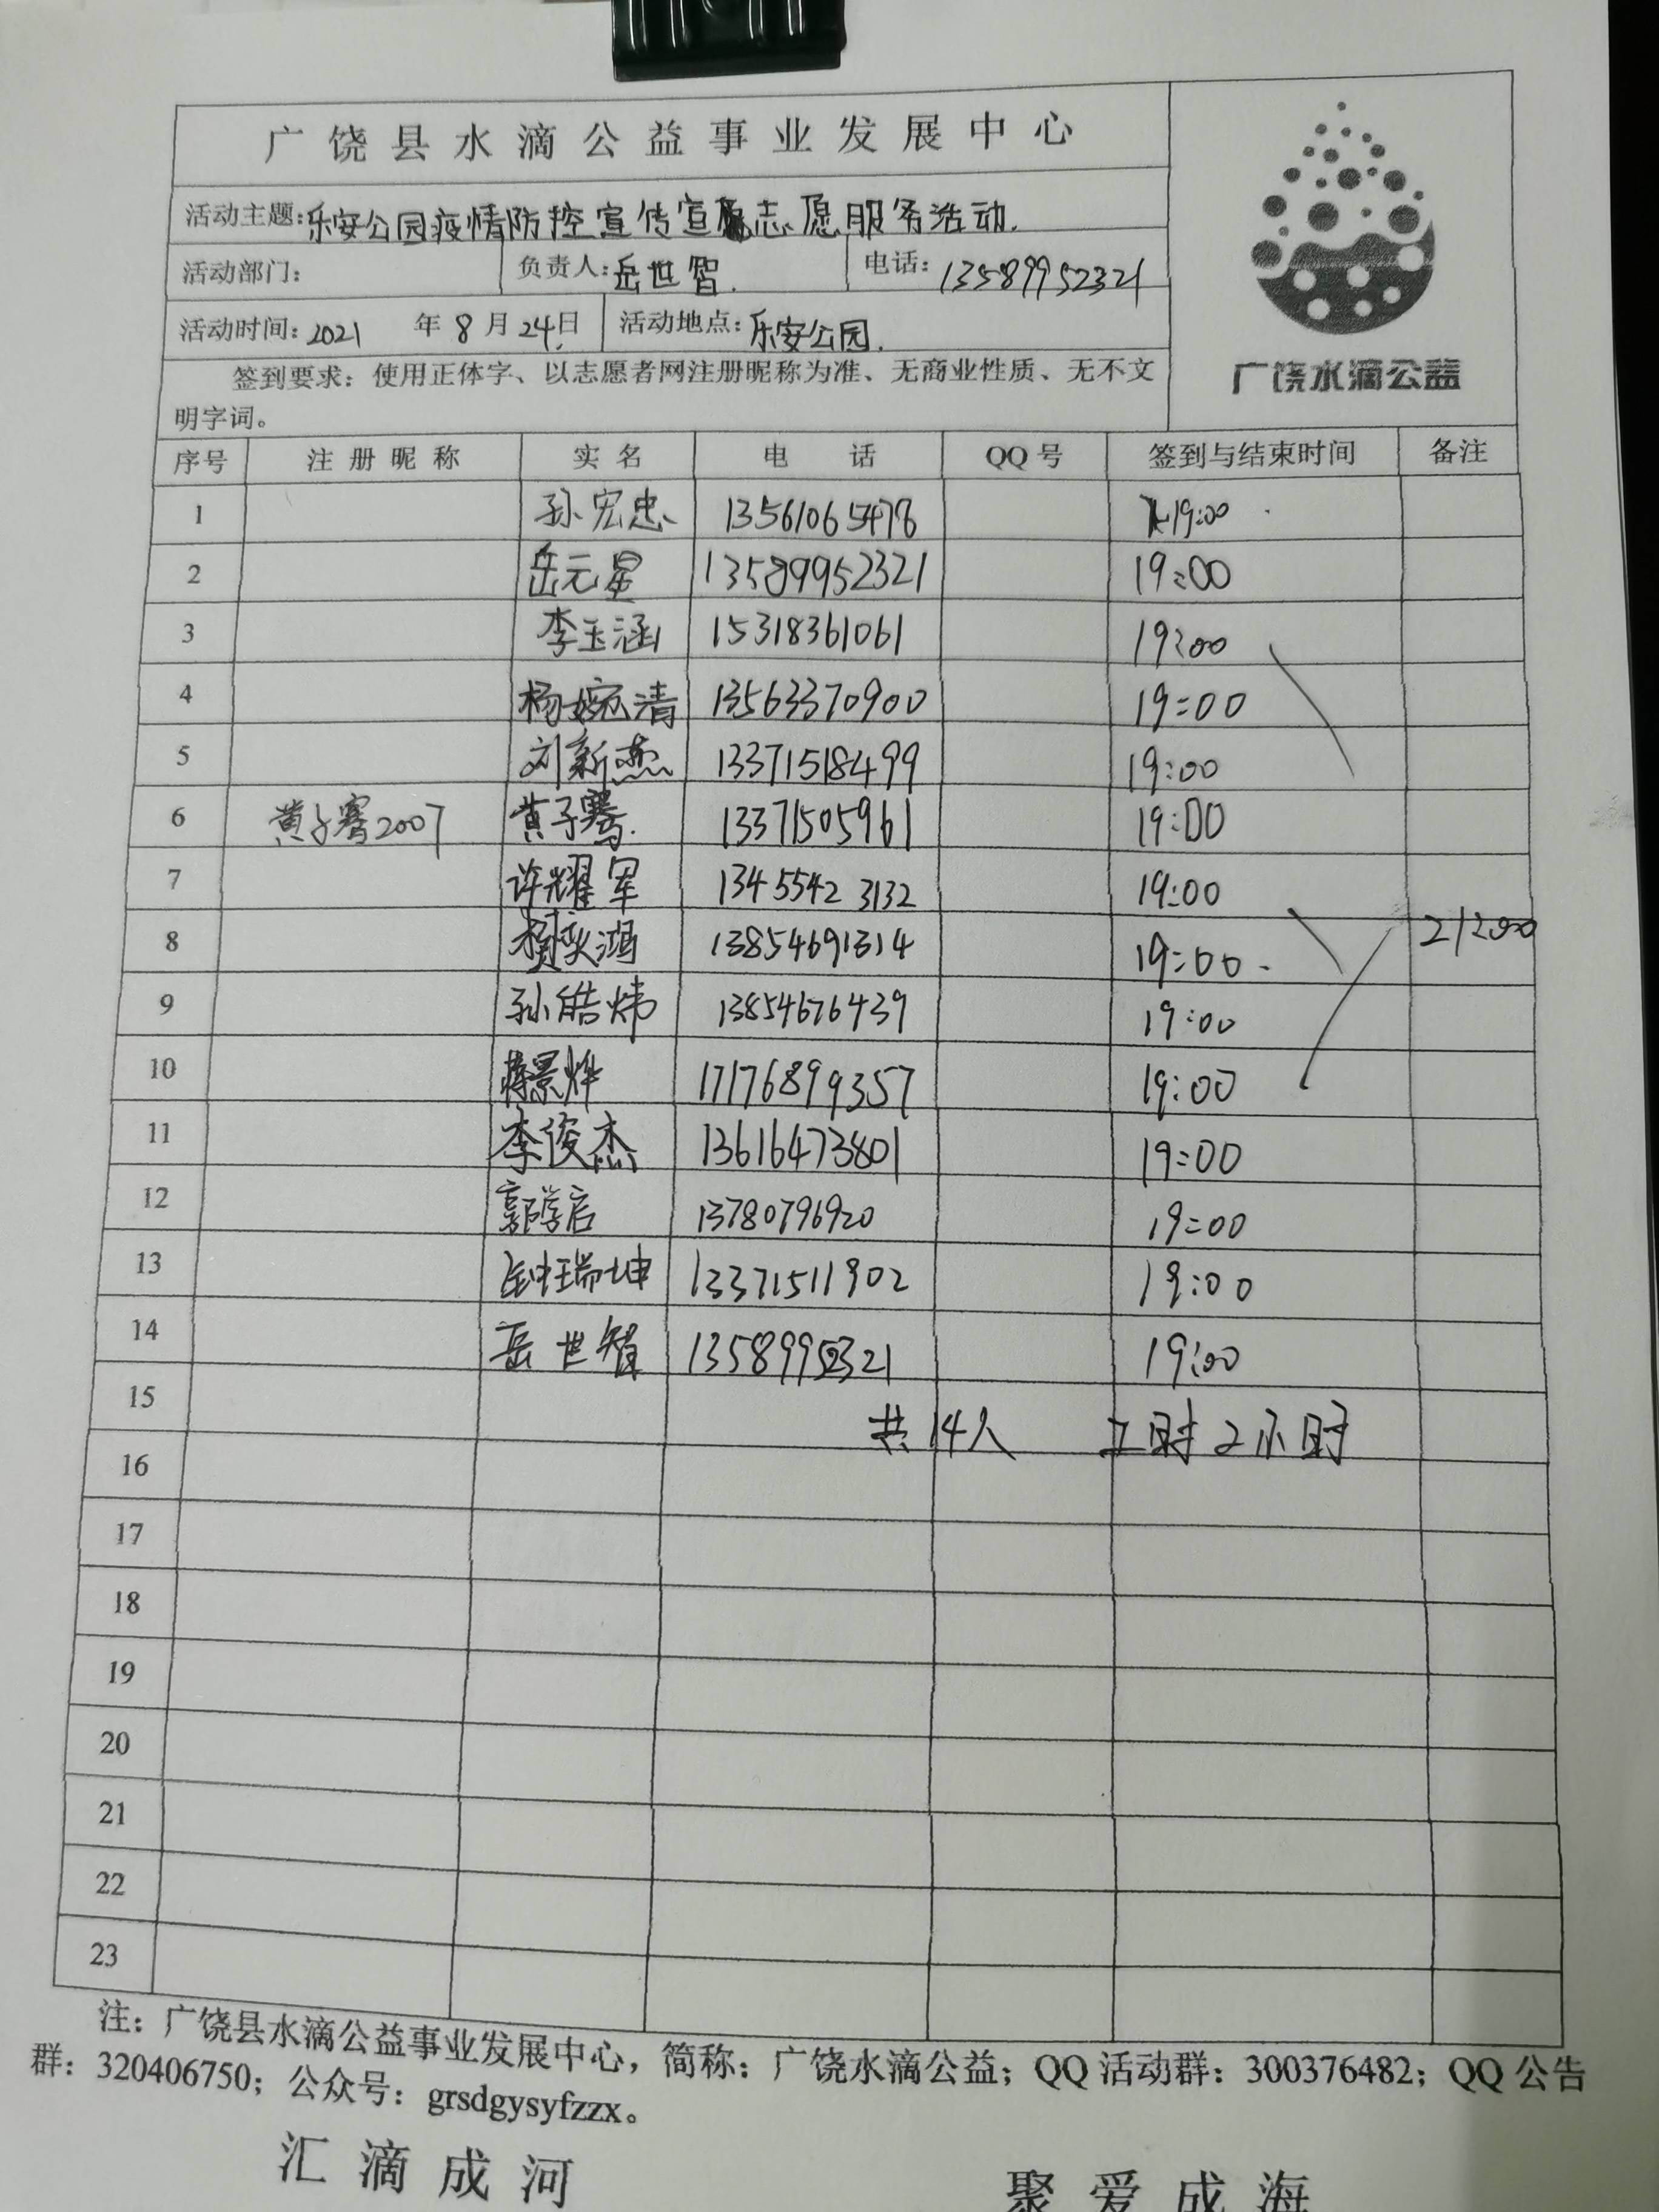 广饶县水滴公益事业发展中心
活动主题:乐安公园疫情防控宣传宣志愿服务活动.
活动部门: 负责人:岳世智. 电话: 13589952321
活动时间: 2021 年 8 月 24日 活动地点: 乐安公园.
签到要求: 使用正体字、以志愿者网注册昵称为准、无商业性质、无不文
明字词。
广饶水滴公益
序号 注册昵称 实名 电话 QQ号 签到与结束时间 备注
1 孙宏忠 13561065478 19:00
2 岳元星 13589952321 19:00
3 李玉涵 15318361061 19:00
4 杨婉清 13563370900 19:00
5 刘新燕 13371518499 19:00
6 黄子骞2007 黄子骞. 13371505961 19:00
7 许耀军 1345542 3132 19:00
8 13854691314 19:00. 21:00
9 孙皓炜 13854676439 19:00
10 蒋景烨 17176899357 19:00
11 李俊杰 13616473801 19:00
12 郭学启 13780796920 19:00
13 钟瑞坤 13371511902 19:00
14 岳世智 13589952321 19:00
15 共14人 工时2小时
16
17
18
19
20
21
22
23
注: 广饶县水滴公益事业发展中心, 简称: 广饶水滴公益; QQ 活动群: 300376482; QQ 公告
群: 320406750; 公众号: grsdgysyfzzx。
汇滴成河 聚爱成海